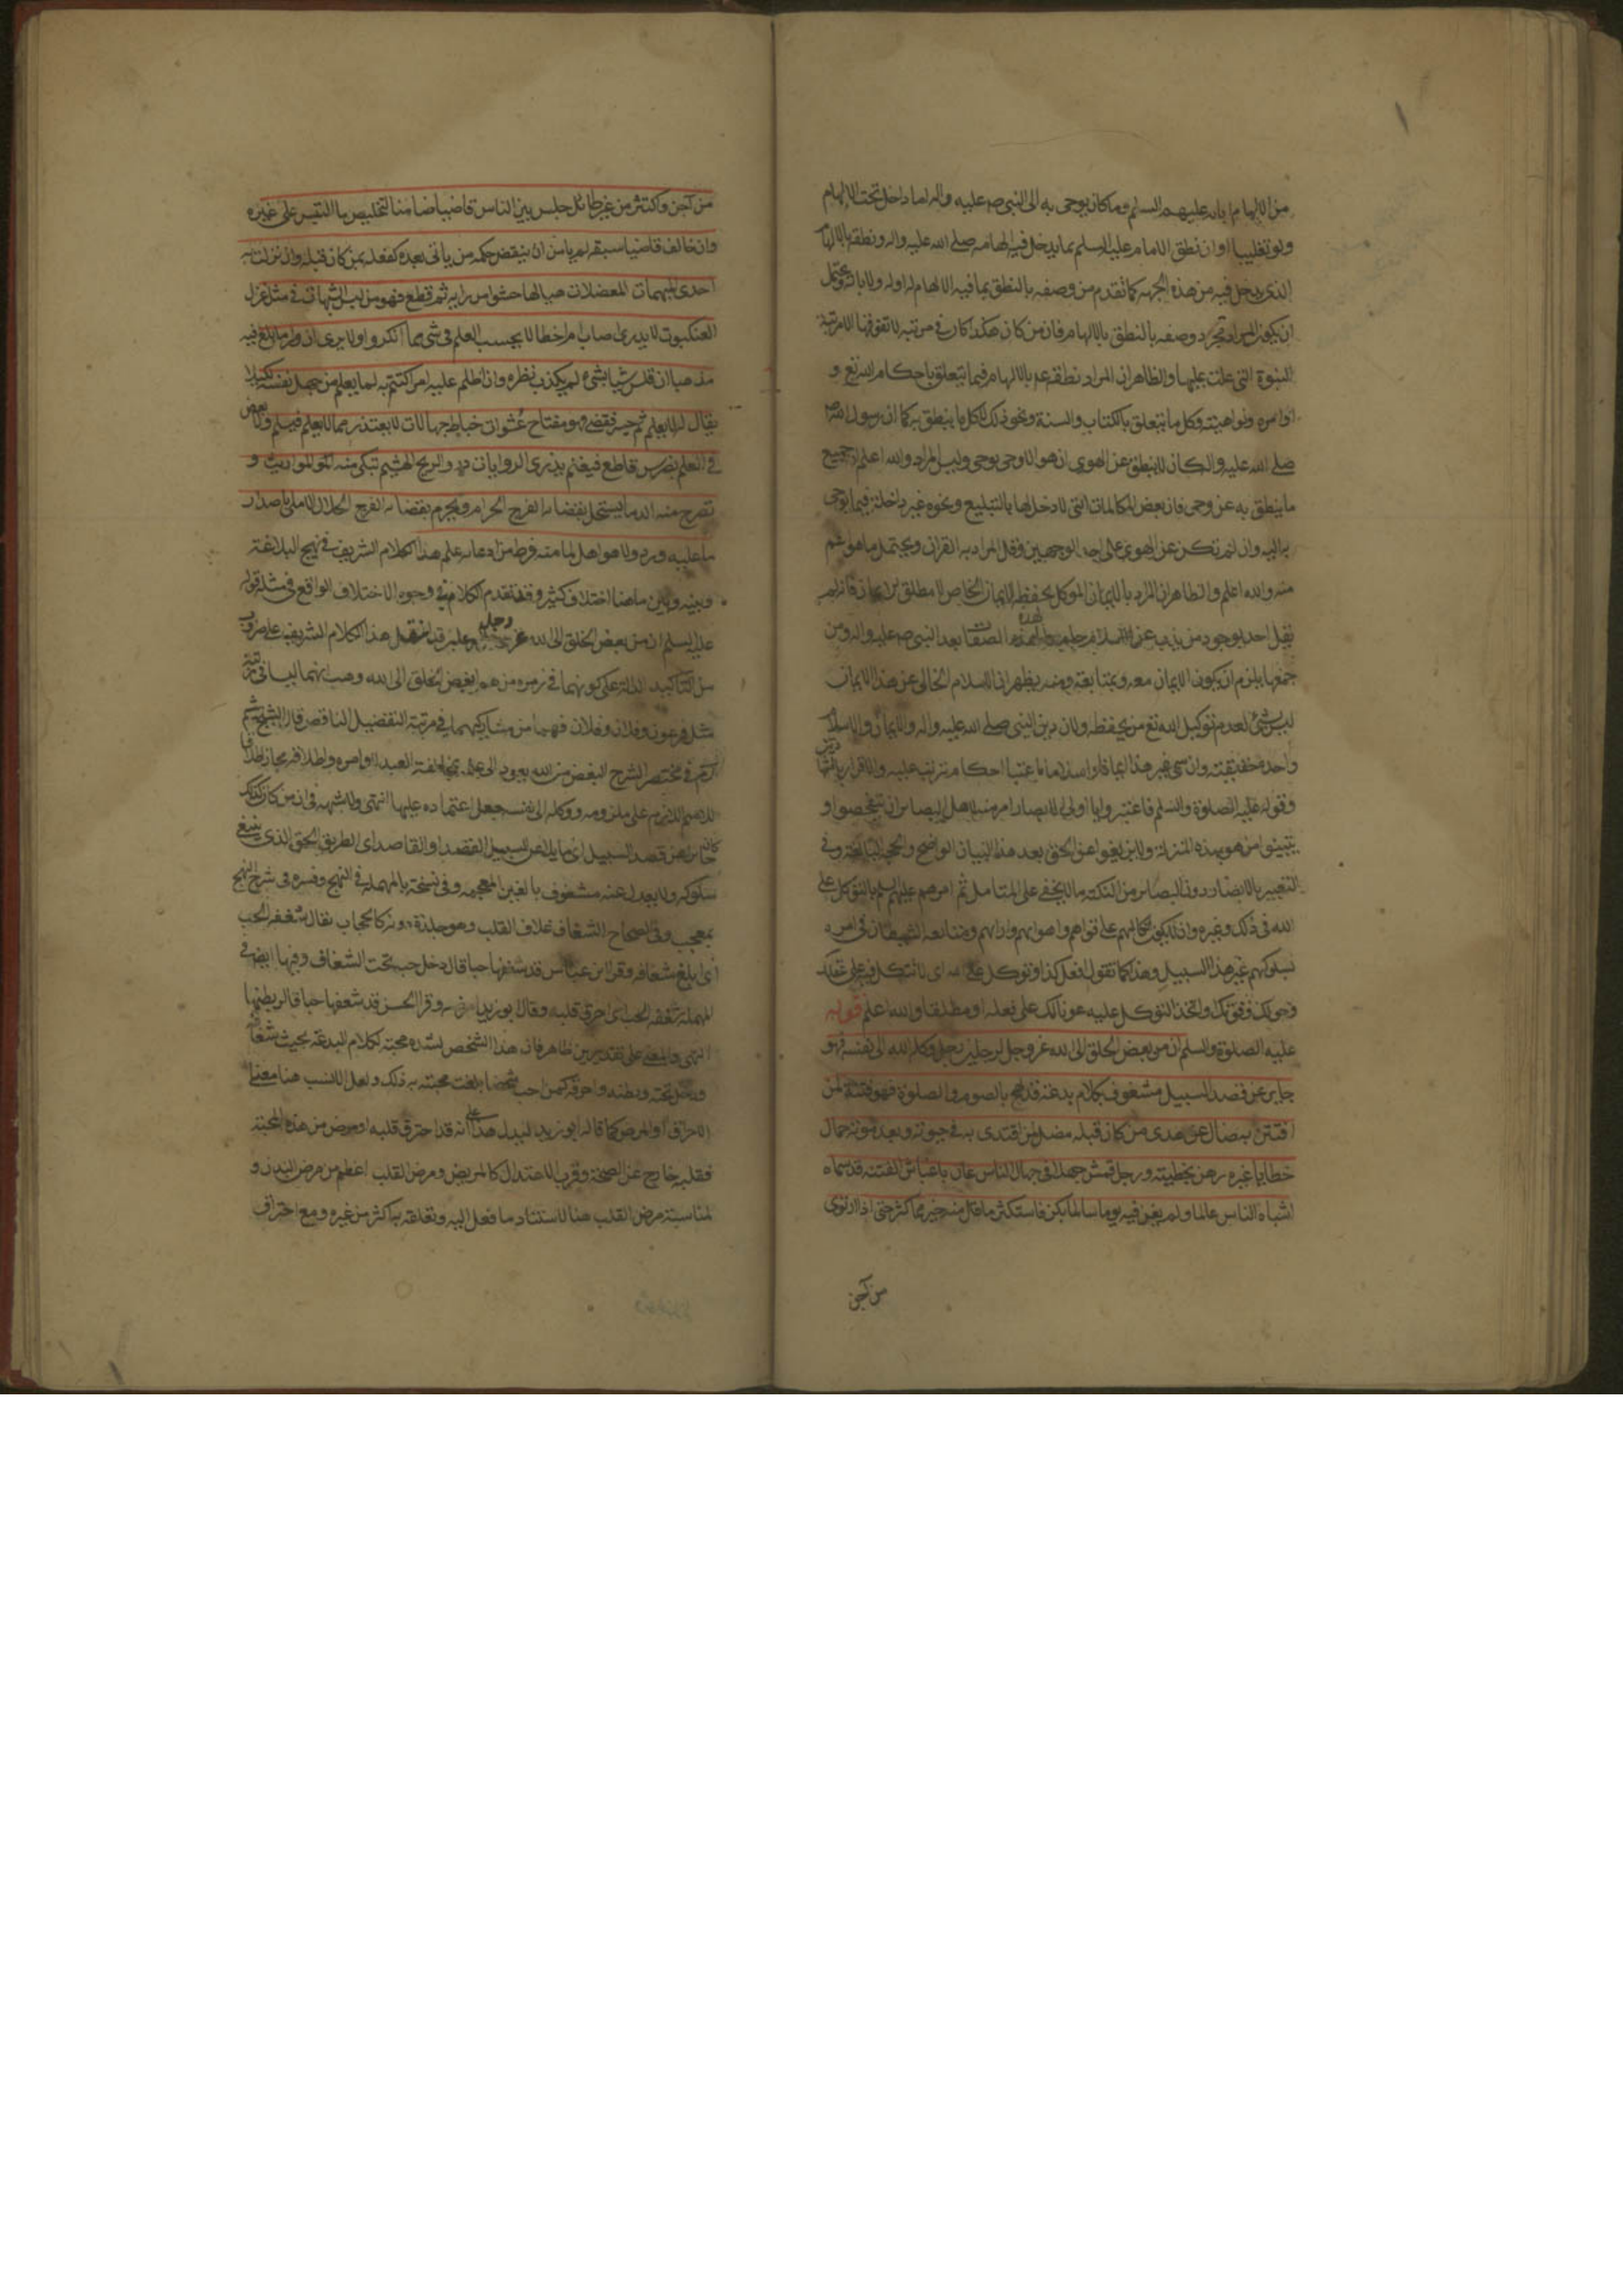 من الالهام بانه عليهم السلام وما كان يوحى به الى النبي صم عليه واله اما داخل تحت الالهام
ولو تغليبا او ان نطق الامام عليه السلم بما يدخل فيه الهامه صلى الله عليه واله ونطقه بالالهام
الذي يدخل فيه من هذه الجهة كما تقدم من وصفه بالنطق بما فيه الالهام له اوله ولابائه ويحتمل
ان يكون المراد مجرد وصفه بالنطق بالالهام فان من كان هكذا كان في مرتبة لا تفوقها الا مرتبة
النبوة التي علت عليها والظاهر ان المراد نطقهم بالالهام فيما يتعلق باحكام الله تع و
اوامره ونواهيه وكل ما يتعلق بالكتاب والسنة ونحو ذلك لا كل ما ينطق به كما ان رسول الله
صلى الله عليه واله كان لا ينطق عن الهوى ان هو الا وحي يوحى وليس المراد والله اعلم ان جميع
ما ينطق به عن وحي فان بعض المكالمات التي لا دخل لها بالتبليغ ونحوه غير داخلة فيما يوحى
به اليه وان لم تكن عن الهوى على احد الوجهين وقيل المراد به القران ويحتمل ما هو اعم
منه والله اعلم والظاهر ان المراد بالايمان الموكل بحفظه الايمان الخاص لا مطلق الايمان فانه لم
يقل احد بوجود من يذب عن الاسلام بهذه الصفات بعد النبي صم عليه واله ومن
جمعها يلزم ان يكون الايمان معه وبمتابعته ومنه يظهر ان الاسلام الخالي عن هذا الايمان
ليس بشئ لعدم توكيل الله تع من يحفظه ولان دين النبي صلى الله عليه واله والايمان والاسلام
واحد حقيقة وان سمي غير هذا ايمانا واسلاما باعتبار احكام تترتب عليه والاقرار بالشهادتين
وقوله عليه الصلوة والسلم فاعتبروا يا اولي الابصار امر منه لاهل البصائر ان يتفحصوا و
يتبينوا من هو بهذه المنزلة ولا يزيغوا عن الحق بعد هذا البيان الواضح والحجة البالغة وفي
التعبير بالابصار دون البصائر من النكتة ما لا يخفى على المتامل ثم امرهم عليه السلم بالتوكل على
الله في ذلك وغيره وان لا يكون اتكالهم على قواهم واهوائهم وارائهم ومتابعة الشيطان في امره
بسلوكهم غير هذا السبيل وهذا كما تقول افعل كذا وتوكل على الله اي لا تتكل فيه على عقلك
وحولك وقوتك واتخذ التوكل عليه عونا لك على فعله او مطلقا والله اعلم قوله
عليه الصلوة والسلم ان من ابغض الخلق الى الله عز وجل لرجلين رجل وكله الله الى نفسه فهو
جاير عن قصد السبيل مشغوف بكلام بدعة قد لهج بالصوم والصلوة فهو فتنة لمن
افتتن به ضال عن هدى من كان قبله مضل لمن اقتدى به في حيوته وبعد موته حمال
خطايا غيره رهن بخطيئته ورجل قمش جهلا في جهال الناس عان باغباش الفتنة قد سماه
اشباه الناس عالما ولم يغن فيه يوما سالما بكر فاستكثر ما قل منه خير مما كثر حتى اذا ارتوى
من آجن
من آجن واكتنز من غير طائل جلس بين الناس قاضيا ضامنا لتخليص ما التبس على غيره
وان خالف قاضيا سبقه لم يامن ان ينقض حكمه من ياتي بعده كفعله بمن كان قبله وان نزلت به
احدى المبهمات المعضلات هيا لها حشوا من رايه ثم قطع فهو من لبس الشبهات في مثل غزل
العنكبوت لا يدري اصاب ام اخطا لا يحسب العلم في شئ مما انكر ولا يرى ان وراء ما بلغ فيه
مذهبا ان قاس شيا بشئ لم يكذب نظره وان اظلم عليه امر اكتتم به لما يعلم من جهل نفسه لكيلا
يقال له لا يعلم ثم جسر فقضى فهو مفتاح عشوات خباط جهالات لا يعتذر مما لا يعلم فيسلم ولا يعض
في العلم بضرس قاطع فيغنم يذري الروايات ذرو الريح الهشيم تبكي منه المواريث و
تصرخ منه الدماء يستحل بقضائه الفرج الحرام ويحرم بقضائه الفرج الحلال لا ملئ باصدار
ما عليه ورد ولا هو اهل لما منه فرط من ادعائه علم هذا الكلام الشريف في نهج البلاغة
وبينه وبين ما هنا اختلاف كثير وقد تقدم الكلام في وجوه الاختلاف الواقع في مثله قوله
عليه السلم ان من ابغض الخلق الى الله عز وجل قد اشتمل هذا الكلام الشريف على ضروب
من التاكيد الدالة على كونهما في زمرة من هم ابغض الخلق الى الله وهب انهما ليسا في مرتبة
مثل فرعون وفلان وفلان فهما من مشاركيهما في مرتبة التفضيل الناقص قال الشيخ ميثم
في مختصر الشرح البغض من الله يعود الى علمه بمخالفة العبد اوامره واطلاقه مجاز اطلاقا
لاسم اللازم على ملزومه ووكله الى نفسه جعل اعتماده عليها انتهى ولا شبهة في ان من كان كذلك
كان جائرا عن قصد السبيل اي مايلا عن السبيل القصد او القاصد اي الطريق الحق الذي ينبغي
سلوكه ولا يعدل عنه مشغوف بالغين المعجمة وفي نسخة بالمهملة في النهج وفسره في شرح النهج
بمعجب وفي الصحاح الشغاف غلاف القلب وهو جلدة دونه كالحجاب يقال شغفه الحب
اي بلغ شغافه وقرا ابن عباس قد شغفها حبا قال دخل حبه تحت الشغاف وفيها ايضا في
المهملة شعفه الحب اي احرق قلبه وقال ابو زيد امرضه وقرا الحسن قد شعفها حبا قال بطنها
انتهى والمعنى على تقديرين ظاهر فان هذا الشخص لشدة محبته لكلام البدعة بحيث شغافه
ودخل تحته وبطنه واحرقه كمن احب شخصا بلغت محبته به ذلك ولعل الانسب هنا معنى
الاحراق او المرض كما قاله ابو زيد ليدل هذا على انه قد احترق قلبه او مرض من هذه المحبة
فقلبه خارج عن الصحة وقرب الاعتدال كالمريض ومرض القلب اعظم من مرض البدن و
لمناسبة مرض القلب هنا لاستناد ما فعل اليه وتعلقه به اكثر من غيره ومع احتراق